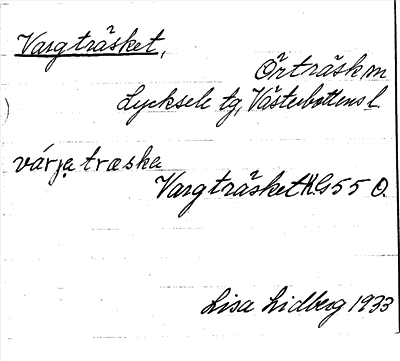 Vargträsket,
Örträsk sn
Lycksele tg, Västerbottens l.
várja træska
Vargträsket KG 55 O.
Lisa Lidberg 1933